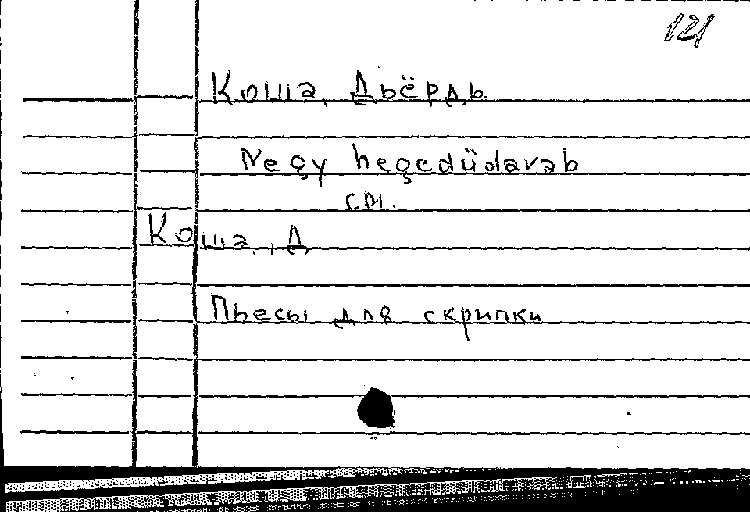 121
Коша, Дьёрдь
Negy hegedüdarab
см.
Коша, Д
Пьесы для скрипки